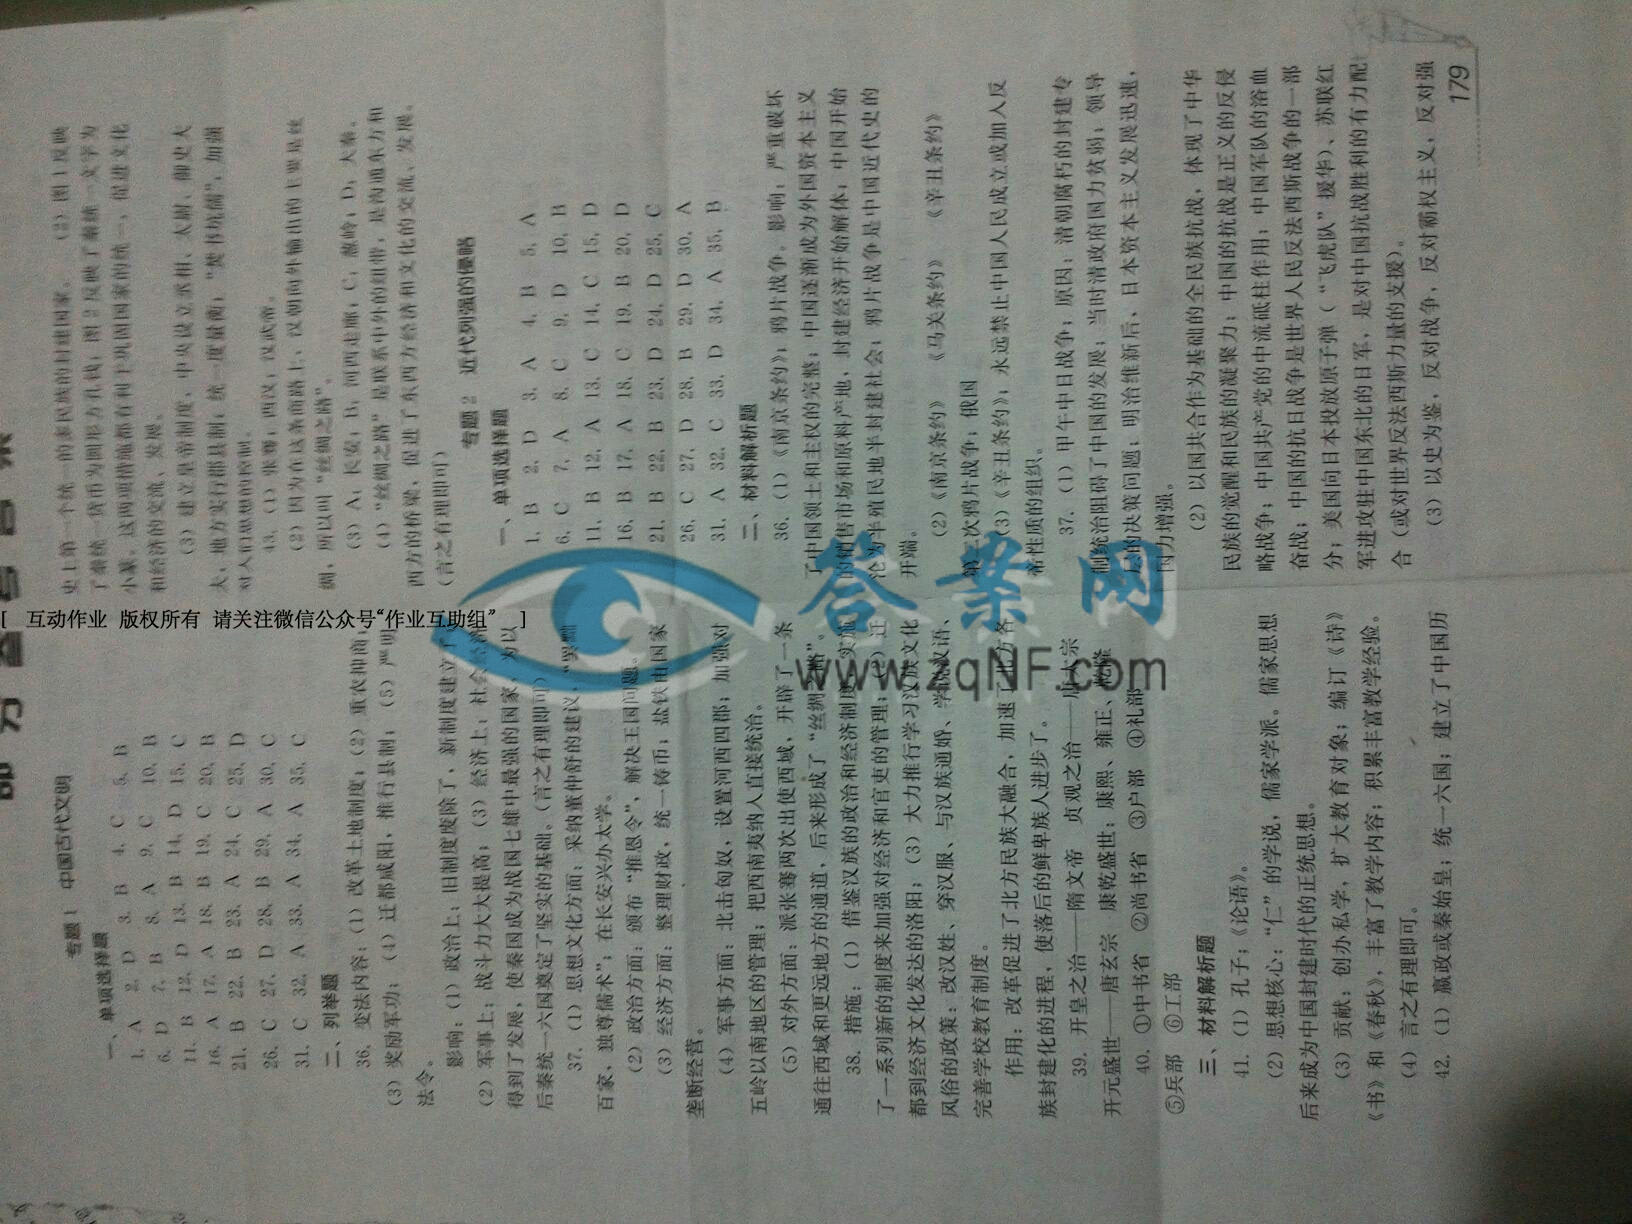 部分参考答案
专题1 中国古代文明
一、单项选择题
1. A 2. D 3. B 4. C 5. B
6. D 7. B 8. A 9. C 10. B
11. B 12. D 13. B 14. D 15. C
16. A 17. A 18. B 19. C 20. B
21. B 22. B 23. A 24. C 25. D
26. C 27. D 28. B 29. A 30. C
31. C 32. A 33. A 34. A 35. C
二、列举题
36. 变法内容：(1) 改革土地制度；(2) 重农抑商；
(3) 奖励军功；(4) 迁都咸阳，推行县制；(5) 严明
法令。
影响：(1) 政治上：旧制度废除了，新制度建立了；
(2) 军事上：战斗力大大提高；(3) 经济上：社会经济
得到了发展，使秦国成为战国七雄中最强的国家，为以
后秦统一六国奠定了坚实的基础。(言之有理即可)
37. (1) 思想文化方面：采纳董仲舒的建议，“罢黜
百家，独尊儒术”；在长安兴办太学。
(2) 政治方面：颁布“推恩令”，解决王国问题。
(3) 经济方面：整理财政，统一铸币；盐铁由国家
垄断经营。
(4) 军事方面：北击匈奴，设置河西四郡；加强对
五岭以南地区的管理；把西南夷纳入直接统治。
(5) 对外方面：派张骞两次出使西域，开辟了一条
通往西域和更远地方的通道，后来形成了“丝绸之路”。
38. 措施：(1) 借鉴汉族的政治和经济制度，实施
了一系列新的制度来加强对经济和官吏的管理；(2) 迁
都到经济文化发达的洛阳；(3) 大力推行学习汉族文化
风俗的政策：改汉姓、穿汉服、与汉族通婚、学说汉语、
完善学校教育制度。
作用：改革促进了北方民族大融合，加速了北方各
族封建化的进程，使落后的鲜卑族人进步了。
39. 开皇之治——隋文帝 贞观之治——唐太宗
开元盛世——唐玄宗 康乾盛世：康熙、雍正、乾隆
40. ①中书省 ②尚书省 ③户部 ④礼部
⑤兵部 ⑥工部
三、材料解析题
41. (1) 孔子；《论语》。
(2) 思想核心：“仁”的学说，儒家学派。儒家思想
后来成为中国封建时代的正统思想。
(3) 贡献：创办私学，扩大教育对象；编订《诗》
《书》和《春秋》，丰富了教学内容；积累丰富教学经验。
(4) 言之有理即可。
42. (1) 嬴政或秦始皇；统一六国；建立了中国历
史上第一个统一的多民族的封建国家。 (2) 图1反映
了秦统一货币为圆形方孔钱；图2反映了秦统一文字为
小篆。这两项措施都有利于巩固国家的统一，促进文化
和经济的交流、发展。
(3) 建立皇帝制度，中央设立丞相、太尉、御史大
夫，地方实行郡县制；统一度量衡；“焚书坑儒”，加强
对人们思想的控制。
43. (1) 张骞；西汉；汉武帝。
(2) 因为在这条商路上，汉朝向外输出的主要是丝
绸，所以叫“丝绸之路”。
(3) A：长安；B：河西走廊；C：葱岭；D：大秦。
(4) “丝绸之路”是联系中外的纽带，是沟通东方和
西方的桥梁，促进了东西方经济和文化的交流、发展。
(言之有理即可)
专题2 近代列强的侵略
一、单项选择题
1. B 2. D 3. A 4. B 5. A
6. C 7. A 8. C 9. D 10. B
11. B 12. A 13. C 14. C 15. D
16. B 17. A 18. C 19. B 20. D
21. B 22. B 23. D 24. D 25. C
26. C 27. D 28. B 29. D 30. A
31. A 32. C 33. D 34. A 35. B
二、材料解析题
36. (1)《南京条约》；鸦片战争。影响：严重破坏
了中国领土和主权的完整；中国逐渐成为外国资本主义
的销售市场和原料产地，封建经济开始解体；中国开始
沦为半殖民地半封建社会；鸦片战争是中国近代史的
开端。
(2)《南京条约》 《马关条约》 《辛丑条约》
第二次鸦片战争；俄国
(3)《辛丑条约》；永远禁止中国人民成立或加入反
帝性质的组织。
37. (1) 甲午中日战争；原因：清朝腐朽的封建专
制统治阻碍了中国的发展；当时清政府国力贫弱；领导
层的决策问题；明治维新后，日本资本主义发展迅速，
国力增强。
(2) 以国共合作为基础的全民族抗战，体现了中华
民族的觉醒和民族的凝聚力；中国的抗战是正义的反侵
略战争；中国共产党的中流砥柱作用；中国军队的浴血
奋战；中国的抗日战争是世界人民反法西斯战争的一部
分；美国向日本投放原子弹（“飞虎队”援华）、苏联红
军进攻驻中国东北的日军，是对中国抗战胜利的有力配
合（或对世界反法西斯力量的支援）。
(3) 以史为鉴，反对战争，反对霸权主义，反对强
179
[ 互动作业 版权所有 请关注微信公众号“作业互助组” ]
答案网
www.zqNF.com